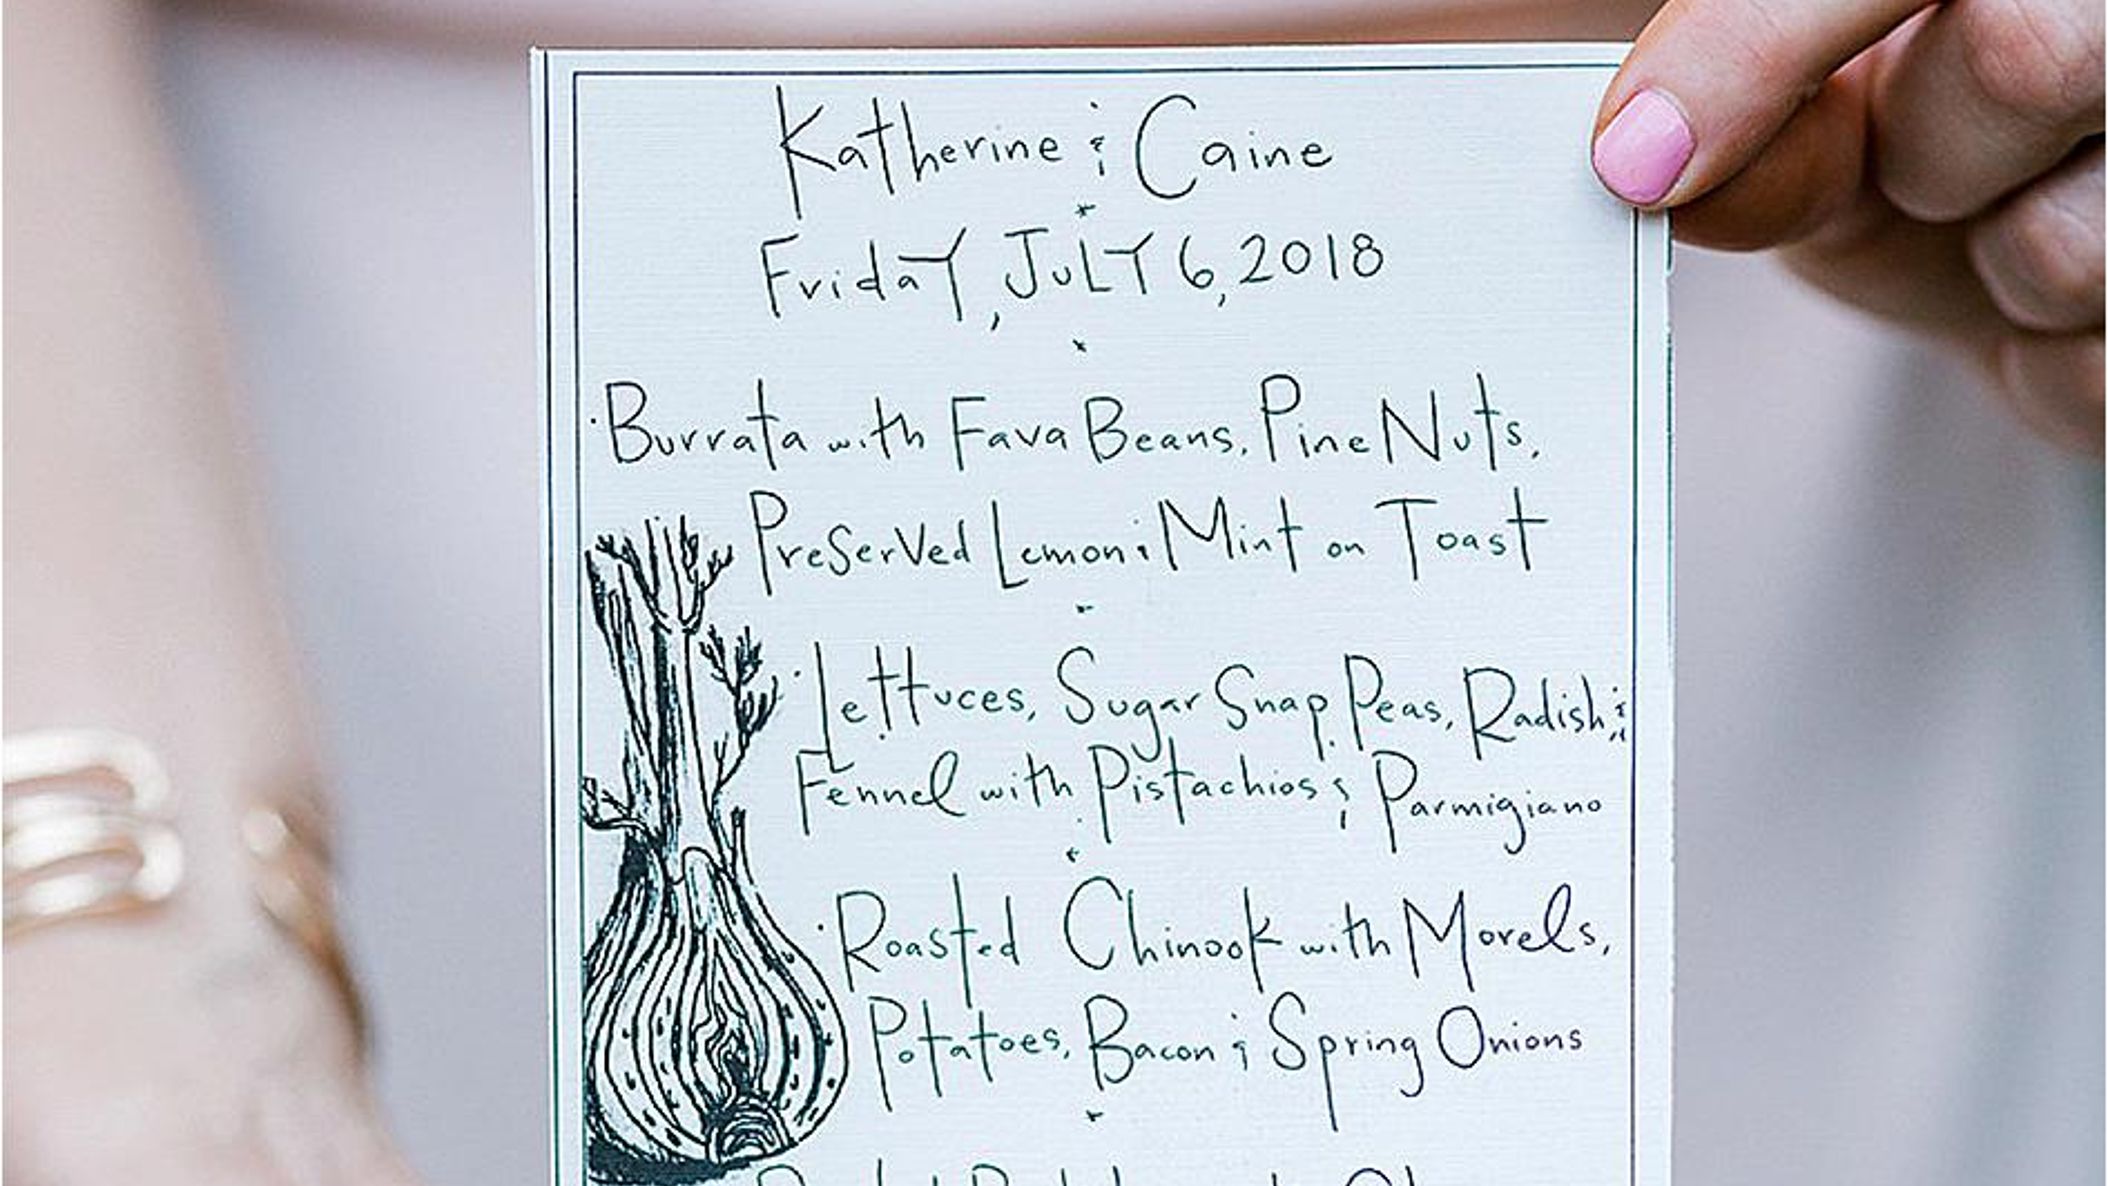 Katherine & Caine
Friday, July 6, 2018
Burrata with Fava Beans, Pine Nuts,
Preserved Lemon & Mint on Toast
Lettuces, Sugar Snap Peas, Radish &
Fennel with Pistachios & Parmigiano
Roasted Chinook with Morels,
Potatoes, Bacon & Spring Onions